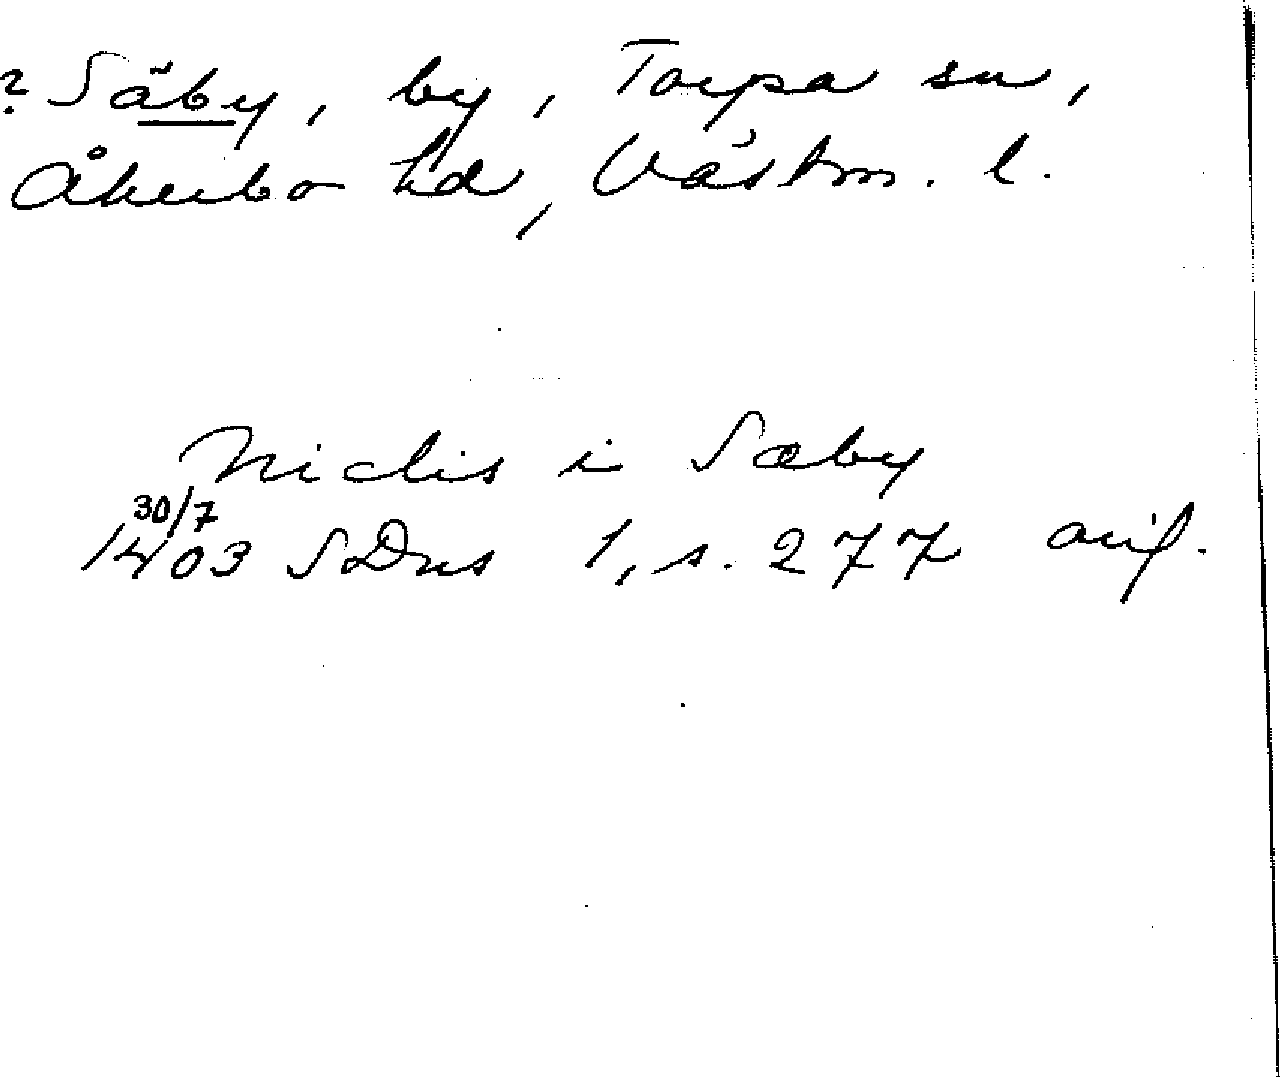 ? Säby, by, Torpa sn,
Åkerbo hd, Västm. l.
Niclis i Sæby
30/7
1403 SDns 1, s. 277 avf.